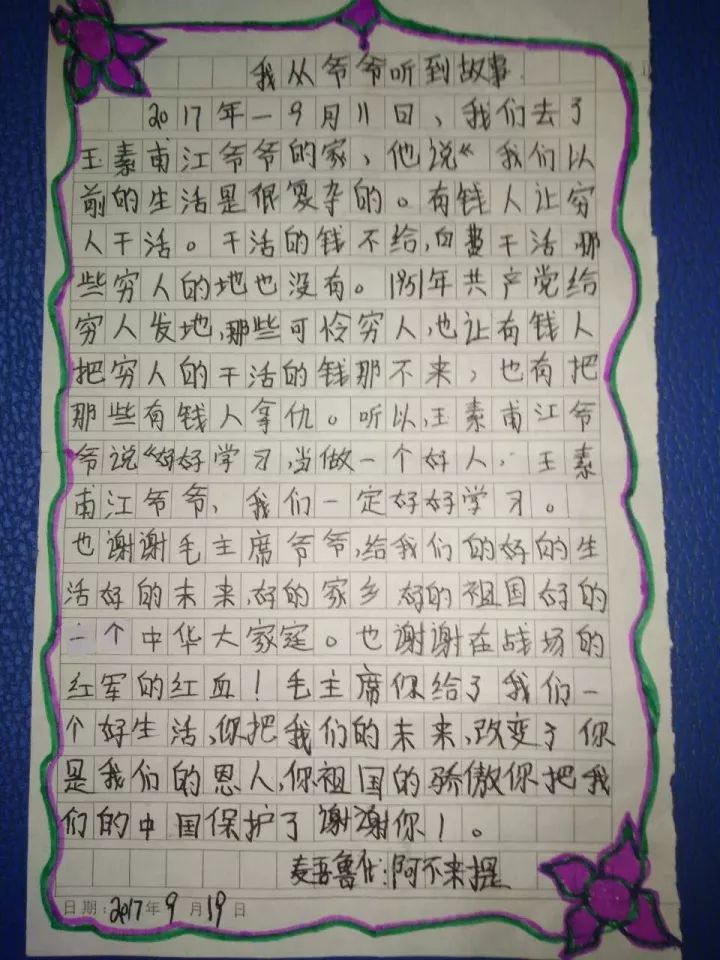 我从爷爷听到故事
2017年一9月11日、我们去了
玉素甫江爷爷的家、他说“我们以
前的生活是很复杂的。有钱人让穷
人干活。干活的钱不给,白费干活,那
些穷人的地也没有。1951年共产党给
穷人发地,那些可伶穷人,也让有钱人
把穷人的干活的钱那不来,也有把
那些有钱人拿仇。听以,玉素甫江爷
爷说“好好学习,当做一个好人,玉素
甫江爷爷、我们一定好好学习。
也谢谢毛主席爷爷,给我们的好的生
活好的未来,好的家乡 好的祖国好的
一个中华大家庭。也谢谢在战场的
红军的红血!毛主席你给了我们一
个好生活,你把我们的未来,改变了你
是我们的恩人,你祖国的骄傲你把我
们的中国保护了谢谢你!。
麦吾鲁代:阿不来提
日期:2017年9月19日